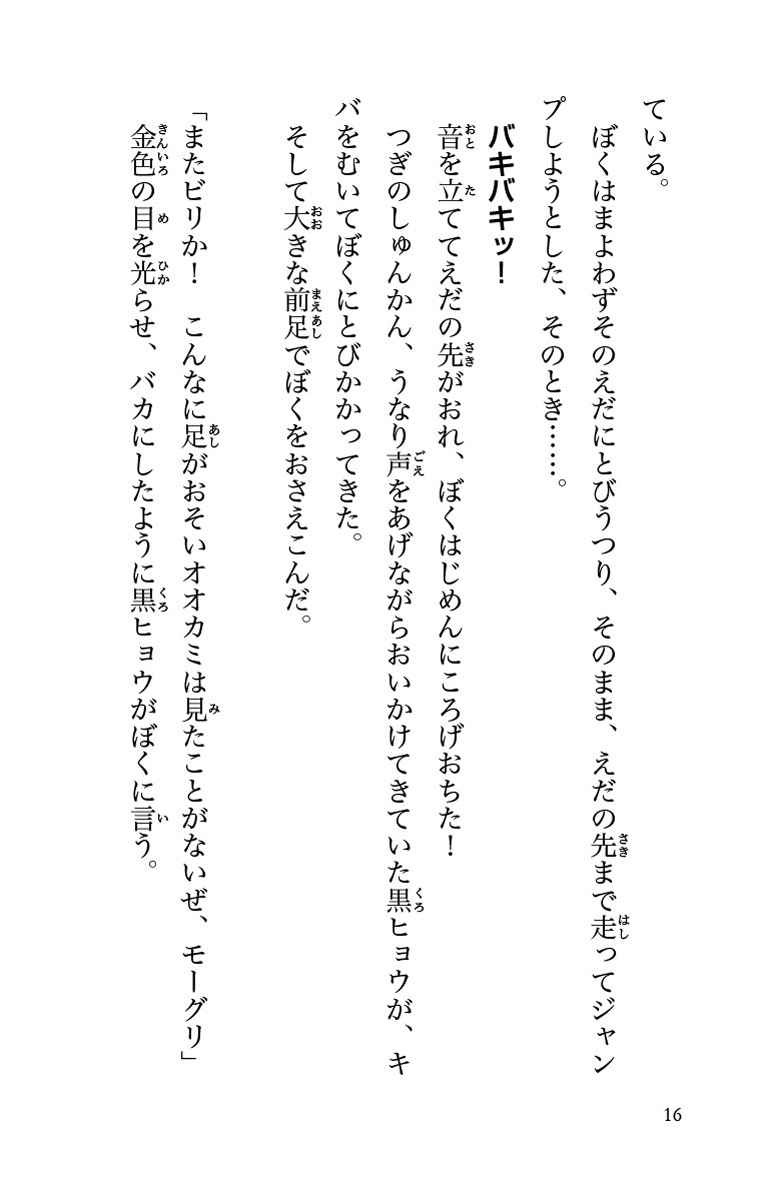 ている。
ぼくはまよわずそのえだにとびうつり、そのまま、えだの先まで走ってジャン
プしようとした、そのとき……。
バキバキッ！
音を立ててえだの先がおれ、ぼくはじめんにころげおちた！
つぎのしゅんかん、うなり声をあげながらおいかけてきていた黒ヒョウが、キ
バをむいてぼくにとびかかってきた。
そして大きな前足でぼくをおさえこんだ。
「またビリか！　こんなに足がおそいオオカミは見たことがないぜ、モーグリ」
金色の目を光らせ、バカにしたように黒ヒョウがぼくに言う。
16